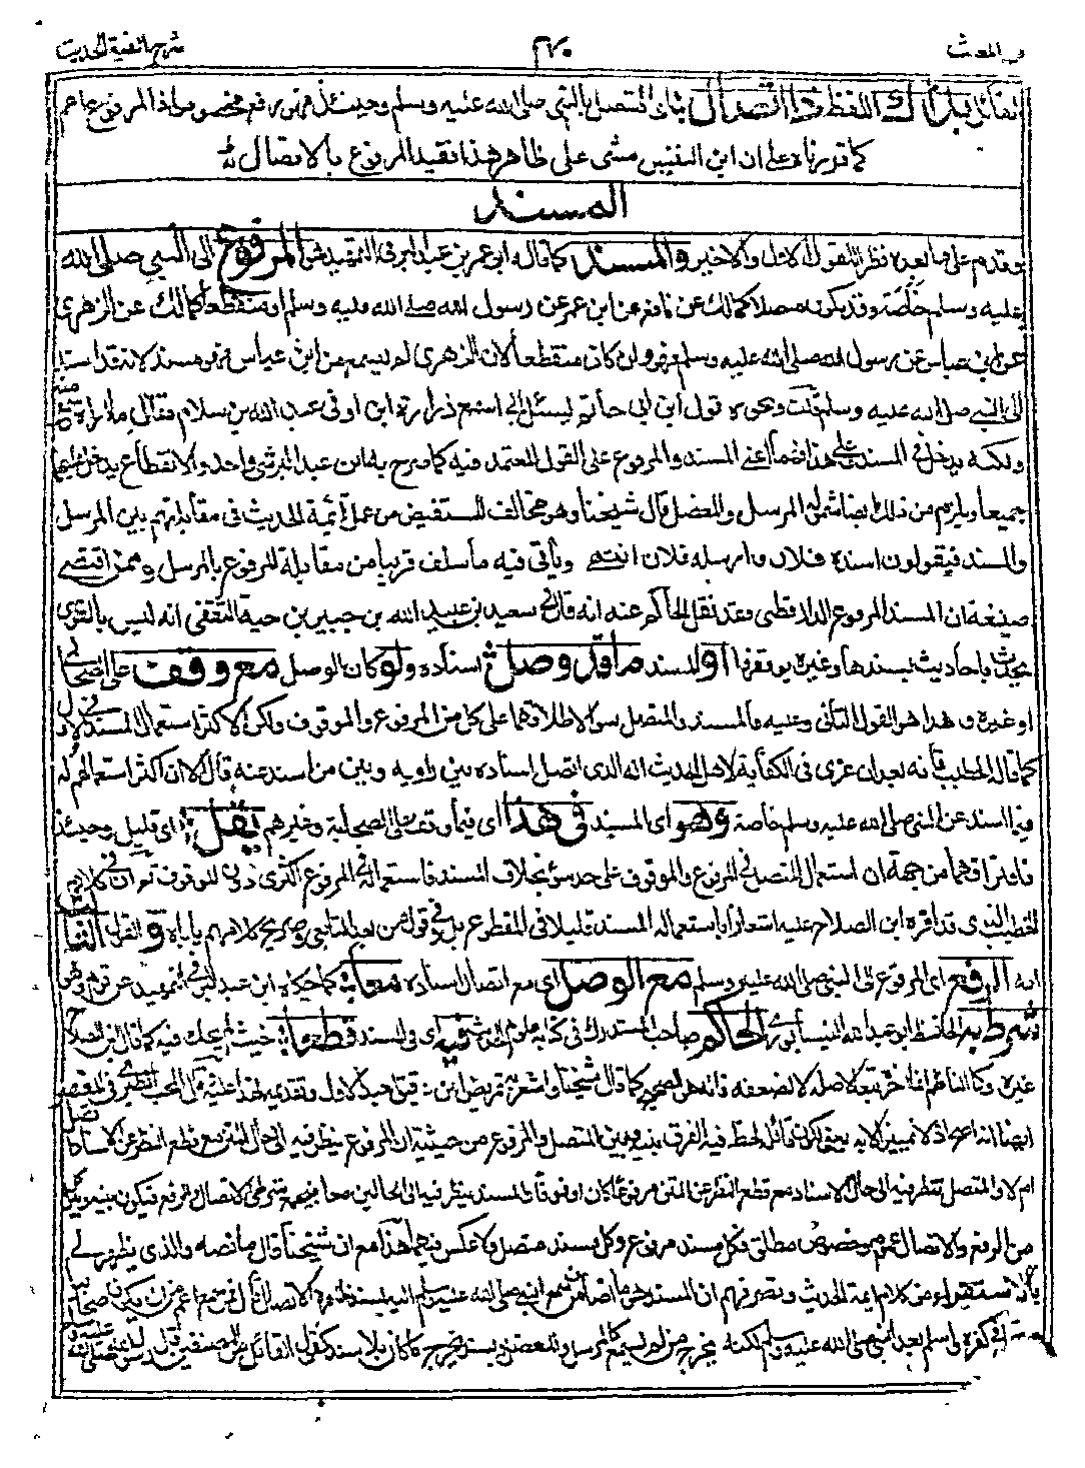 شرح الفية الحديث
٢٧٠
فتح المغيث
القائل بذاك اللفظ ذا اتصال اى المتصل بالنبي صلى الله عليه وسلم وحينئذ فهو رفع مخصوص اذ المرفوع اعم
كما قررناه على ان ابن النفيس مشى على ظاهر هذا فقيد المرفوع بالاتصال
المسند
وقدم على ما بعده نظرا للقول الاول والاخير والمسند كما قاله ابو عمر بن عبد البر في التمهيد هو المرفوع الى النبي صلى الله
عليه وسلم خاصة وقد يكون متصلا كمالك عن نافع عن ابن عمر عن رسول الله صلى الله عليه وسلم او منقطعا كمالك عن الزهري
عن ابن عباس عن رسول الله صلى الله عليه وسلم فهو وان كان منقطعا لان الزهري لم يسمع من ابن عباس فهو مسند لانه قد اسند
الى النبي صلى الله عليه وسلم قلت ونحوه قول ابن ابي حاتم ليسئل ابي اسمع زرارة بن اوفى عن عبد الله بن سلام فقال ما اراه سمع منه
ولكنه يدخل في المسند وعلى هذا فهما اعني المسند والمرفوع على القول المعتمد فيه كما صرح به ابن عبد البر شئ واحد والانقطاع يدخل عليهما
جميعا ويلزم من ذلك ايضا شموله المرسل والمعضل قال شيخنا وهو مخالف للمستفيض من عمل ائمة الحديث في مقابلتهم بين المرسل
والمسند فيقولون اسنده فلان وارسله فلان انتهى ويأتي فيه ما سلف قريبا من مقابلة المرفوع بالمرسل وممن اقتضى
صنيعه ان المسند المرفوع الدارقطني وقد نقل الحاكم عنه انه قال في سعيد بن عبيد الله بن جبير بن حية الثقفي انه ليس بالقوى
يحدث باحاديث يسندها وغيره يوقفها او المسند ما قد وصل اسناده ولو كان الوصل مع وقف على الصحابي
او غيره وهذا هو القول الثاني وعليه فالمسند والمتصل سواء لاطلاقهما على كل من المرفوع والموقوف ولكن الاكثر استعمال المسند في الاول
كما قاله الخطيب فانه بعد ان عزى في الكفاية لاهل الحديث انه الذي اتصل اسناده بين راويه وبين من اسند عنه قال الا ان اكثر استعمالهم له
فيما اسند عن النبي صلى الله عليه وسلم خاصة وهو اى المسند في هذا اى فيما وقف على الصحابة وغيرهم يقل اى قليل وحينئذ
فافتراقهما من جهة ان استعمال المتصل في المرفوع والموقوف على حد سواء بخلاف المسند فاستعماله في المرفوع اكثرى دون الموقوف ثم ان في كلام
الخطيب الذي قد اقره ابن الصلاح عليه اشعارا باستعمال المسند قليلا في المقطوع بل وفي قول من بعد التابعي وصريح كلامهم يأباه و القول الثالث
انه الرفع اى المرفوع الى النبي صلى الله عليه وسلم مع الوصل اى مع اتصال اسناده معا كما حكاه ابن عبد البر في التمهيد عن قوم وهو
شرط به الحافظ ابو عبد الله النيسابورى الحاكم صاحب المستدرك في كتابه علوم الحديث فيه اى في المسند قطعا حيث لم يحك فيه كما قال ابن الصلاح
غيره وكان الناظم انما اخره تبعا لاصله لا لضعفه فانه هو الصحيح كما قال شيخنا واشعر به تمريض ابن دقيق العيد للاول وتقديمه لهذا عليه قال المحب الطبري في المعتصر
ايضا انه اعم اذ لا تمييز الا به يعني لكون قائله لحظ فيه الفرق بينه وبين المتصل والمرفوع من حيثية ان المرفوع ينظر فيه الى حال المتن مع قطع النظر عن الاسناد اتصل
ام لا والمتصل ينظر فيه الى حال الاسناد مع قطع النظر عن المتن مرفوعا كان او موقوفا والمسند ينظر فيه الى الحالين معا فيجمع شرطي الاتصال والرفع فيكون بينه وبين كل
من الرفع والاتصال عموم وخصوص مطلق فكل مسند مرفوع وكل مسند متصل ولا عكس فيهما هذا مع ان شيخنا قال ما نصه والذي يظهر لي
بالاستقراء من كلام ائمة الحديث وتصرفهم ان المسند هو ما اضافه من سمع النبي صلى الله عليه وسلم اليه بسند ظاهره الاتصال قال فمن سمع اعم من ان يكون صحابيا